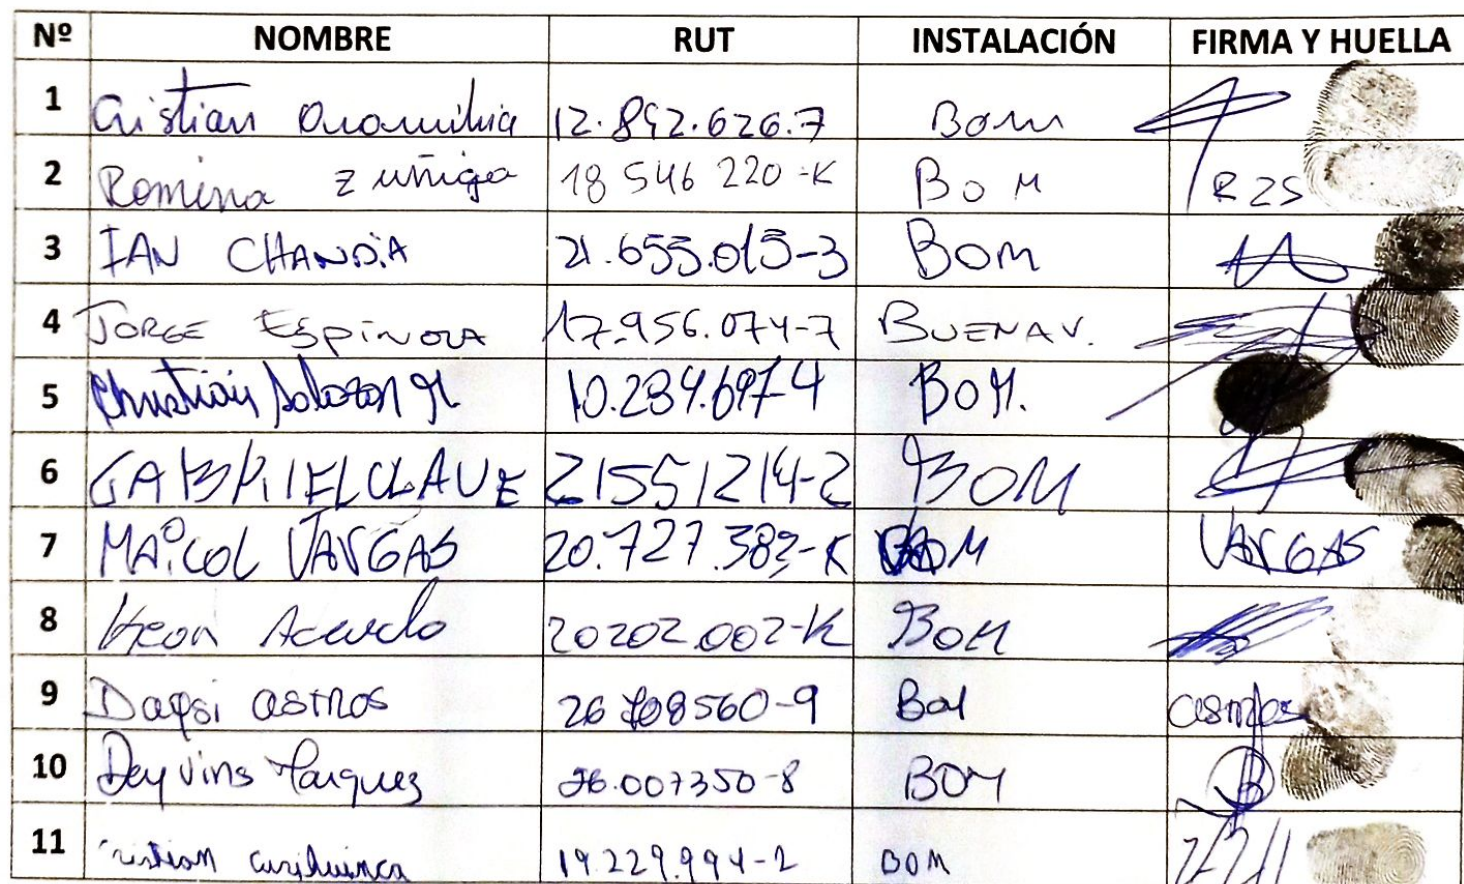 Nº NOMBRE RUT INSTALACIÓN FIRMA Y HUELLA
1 Cristian 12.852.626.7 BOM
2 Romina Zuñiga 18 546 220-K BOM RZS
3 IAN CHANDiA 21.655.015-3 BOM
4 JORGE ESPINOZA 17.956.074-7 BUENAV.
5 Christian Salazar M. 10.284.697-4 BOM.
6 GABRIEL CLAVE 21551214-2 BOM
7 MAiCOL VARGAS 20.727.383-K BOM VARGAS
8 Acevedo 20202.002-K BOM
9 Dagsi castros 26708560-9 BOM
10 Deyvins Marquez 26.007350-8 BOM
11 Cristian curihuinca 19.229.994-2 BOM